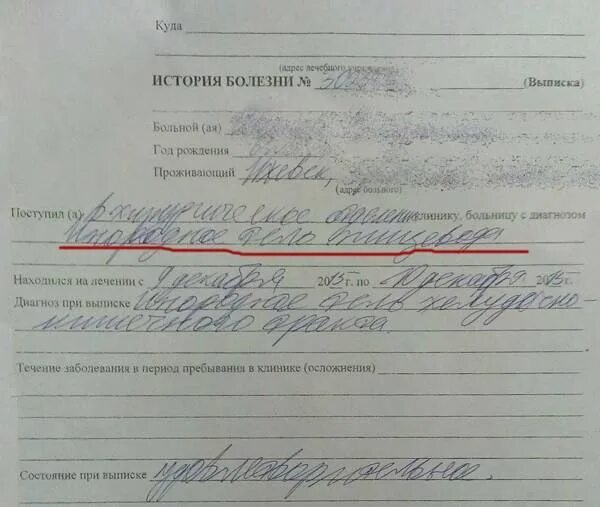 Куда
(адрес лечебного учреждения)
ИСТОРИЯ БОЛЕЗНИ № (Выписка)
Больной (ая)
Год рождения
Проживающий Ижевск,
(адрес больного)
Поступил (а) в хирургическое отделение клинику, больницу с диагнозом
Инородное тело пищевода
Находился на лечении с 9 декабря 2015 г. по 10 декабря 2015 г.
Диагноз при выписке Инородное тело желудочно-
кишечного тракта.
Течение заболевания в период пребывания в клинике (осложнения)
Состояние при выписке удовлетворительное.